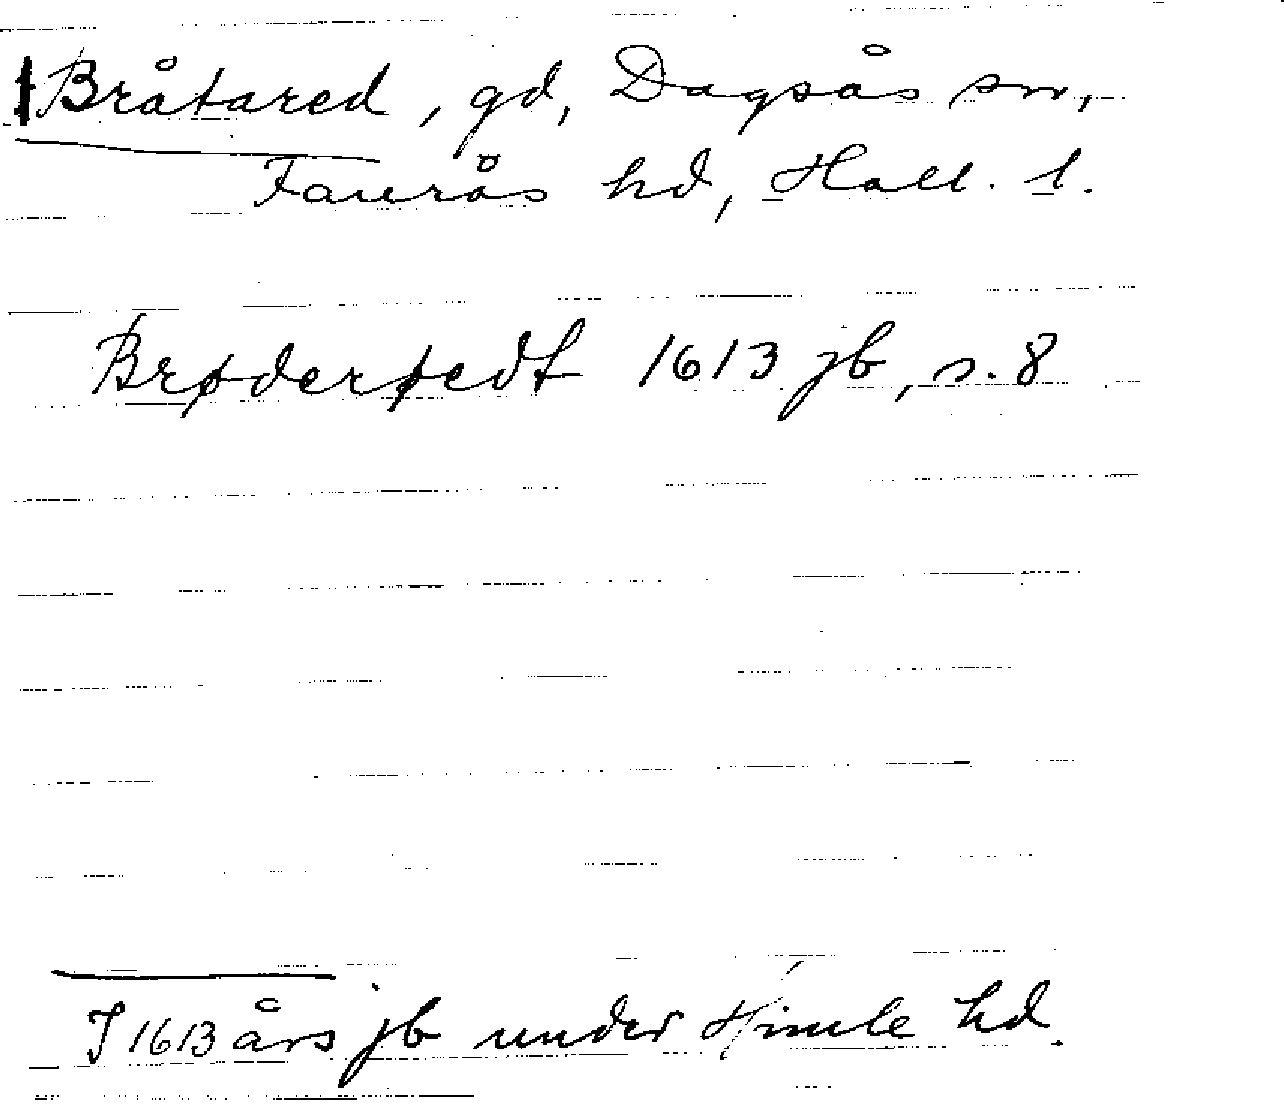 Bråtared, gd, Dagsås sn,
Faurås hd, Hall. l.
Brøderødt 1613 jb, s. 8
I 1613 års jb under Himle hd.